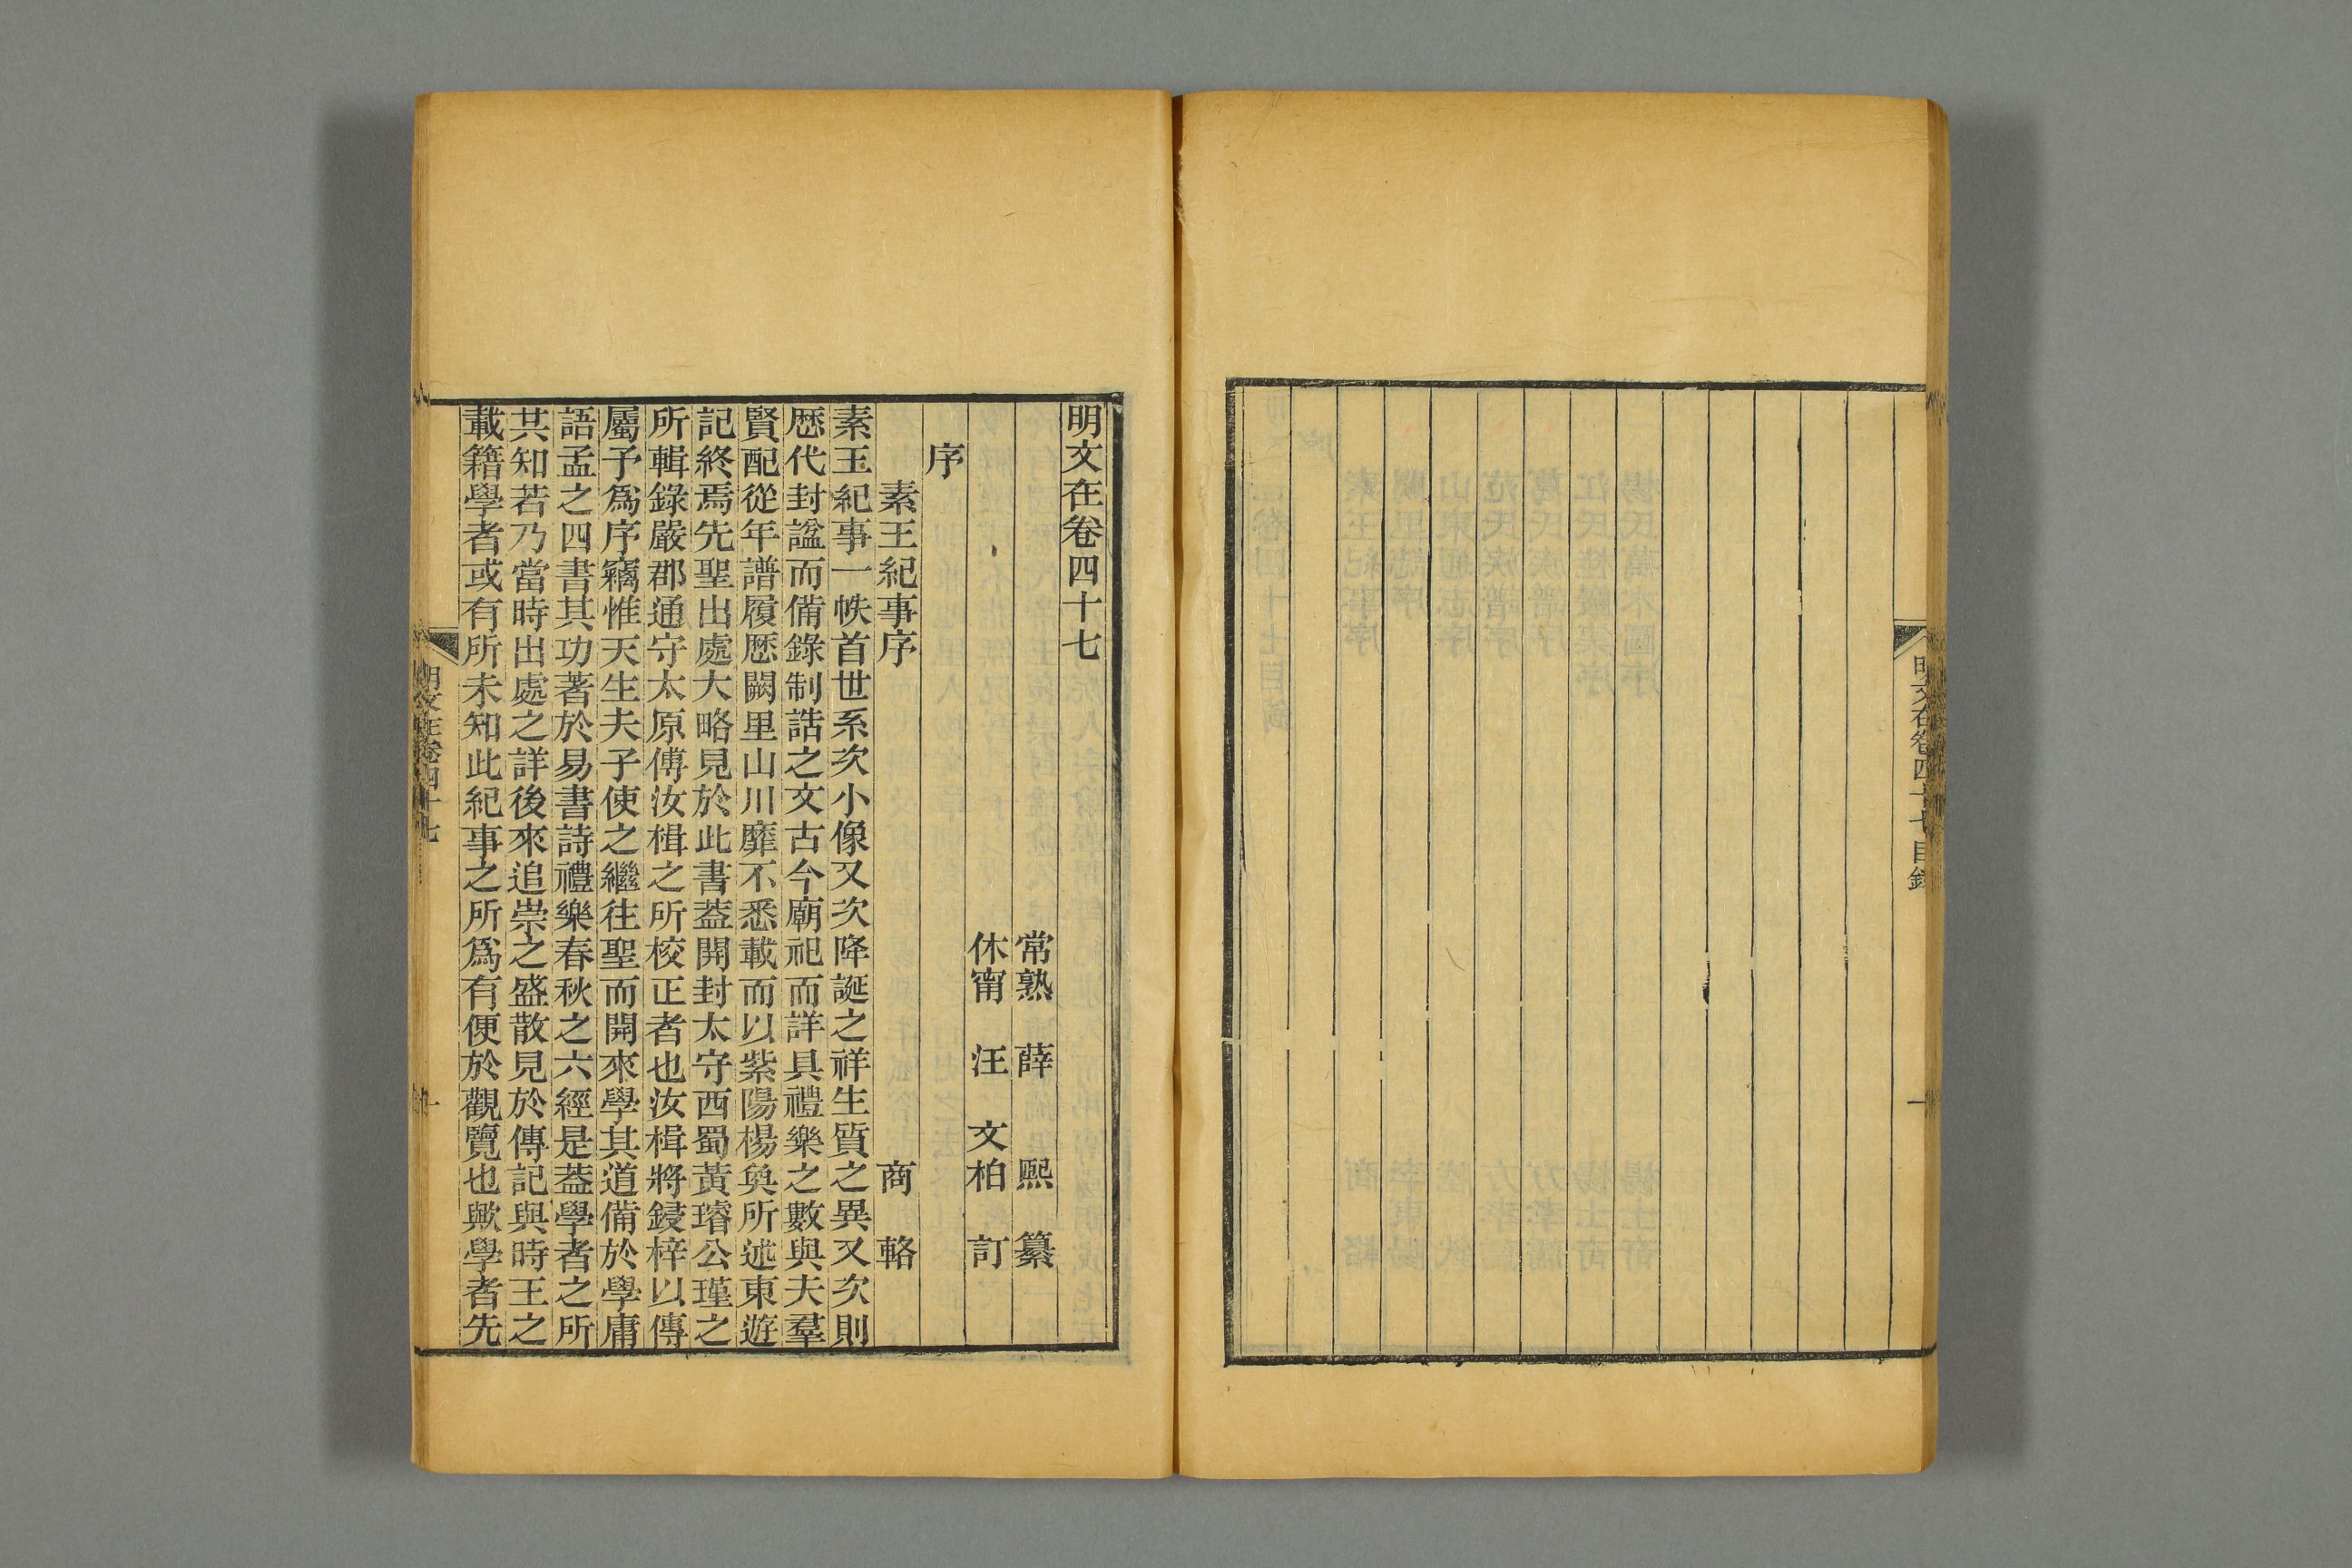 明文在卷四十七目錄
一
明文在卷四十七
常熟 薛 熙 纂
休甯 汪 文柏 訂
序
素王紀事序 商 輅
素王紀事一帙首世系次小像又次降誕之祥生質之異又次則
歷代封諡而備錄制誥之文古今廟祀而詳具禮樂之數與夫羣
賢配從年譜履歷闕里山川靡不悉載而以紫陽楊奐所述東遊
記終焉先聖出處大略見於此書蓋開封太守西蜀黃璿公瑾之
所輯錄嚴郡通守太原傅汝楫之所校正者也汝楫將鋟梓以傳
屬予爲序竊惟天生夫子使之繼往聖而開來學其道備於學庸
語孟之四書其功著於易書詩禮樂春秋之六經是蓋學者之所
共知若乃當時出處之詳後來追崇之盛散見於傳記與時王之
載籍學者或有所未知此紀事之所爲有便於觀覽也歟學者先
明文在卷四十七
一